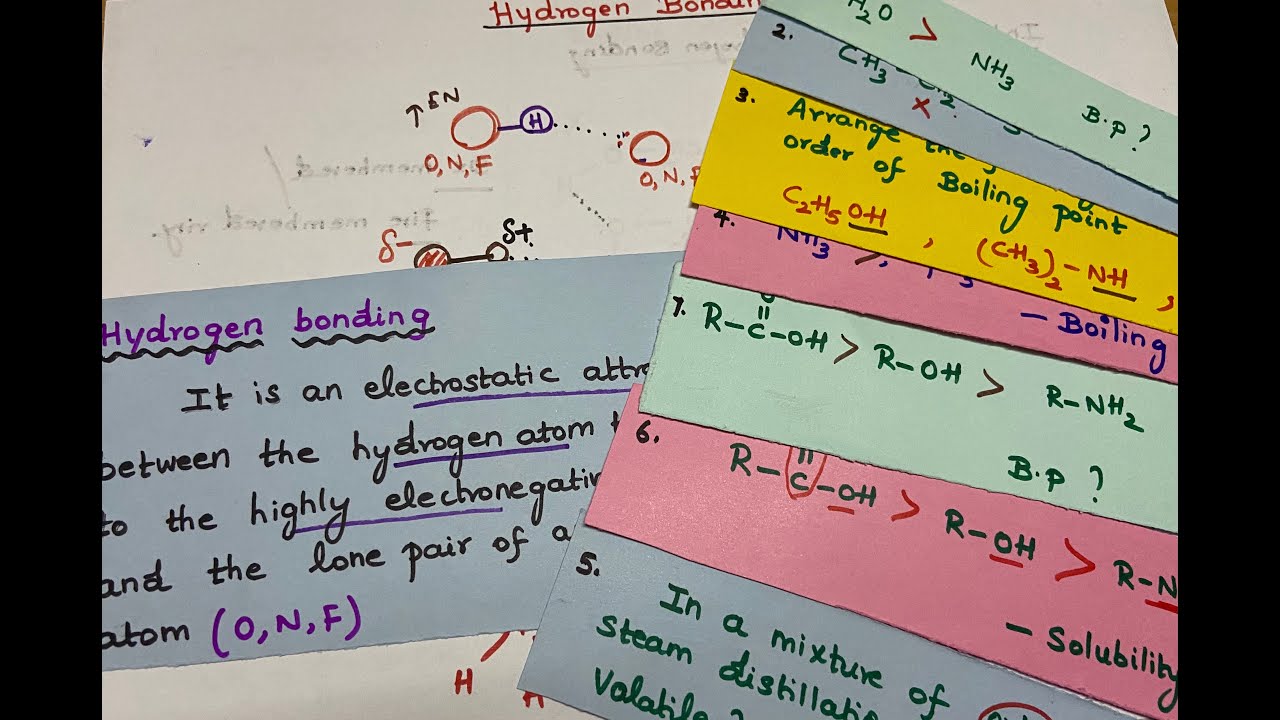 Hydrogen Bondin
↑EN
H
O, N, F
O, N, F
δ- δ+
Hydrogen bonding
It is an electrostatic attr
between the hydrogen atom
to the highly electronegativ
and the lone pair of a
atom (O, N, F)
H
H
H2O > NH3
B.p?
2. CH3
3. Arrange the
order of Boiling point
C2H5OH , (CH3)2-NH ,
4. NH3 >
- Boiling
7. R-C-OH > R-OH > R-NH2
B.p ?
6.
R-C-OH > R-OH > R-N
- Solubility
5.
In a mixture of
steam distillati
Volatile?